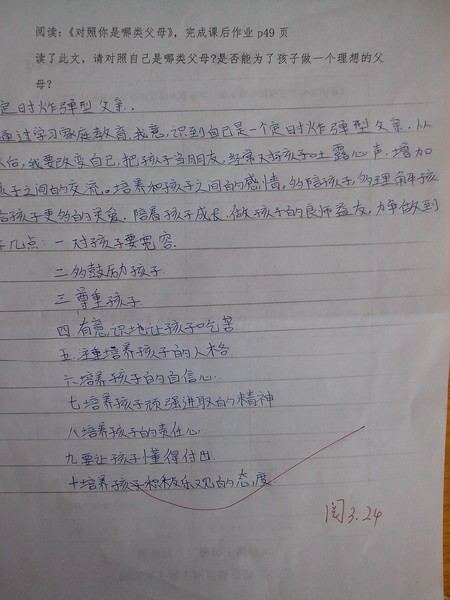 阅读:《对照你是哪类父母》,完成课后作业 p49 页
读了此文,请对照自己是哪类父母?是否能为了孩子做一个理想的父
母?
定时炸弹型父亲.
通过学习家庭教育,我意识到自己是一个定时炸弹型父亲.从
后,我要改变自己,把孩子当朋友,经常对孩子吐露心声.增加
子之间的交流。培养和孩子之间的感情,多陪孩子,多理解孩
给孩子更多的关爱.陪养孩子成长.做孩子的良师益友,力争做到
几点:一对孩子要宽容.
二多鼓励孩子
三尊重孩子
四有意识地让孩子吃苦
五.注重培养孩子的人格
六培养孩子的自信心.
七培养孩子顽强进取的精神
八培养孩子的责任心.
九要让孩子懂得付出
十培养孩子积极乐观的态度.
阅 3.24